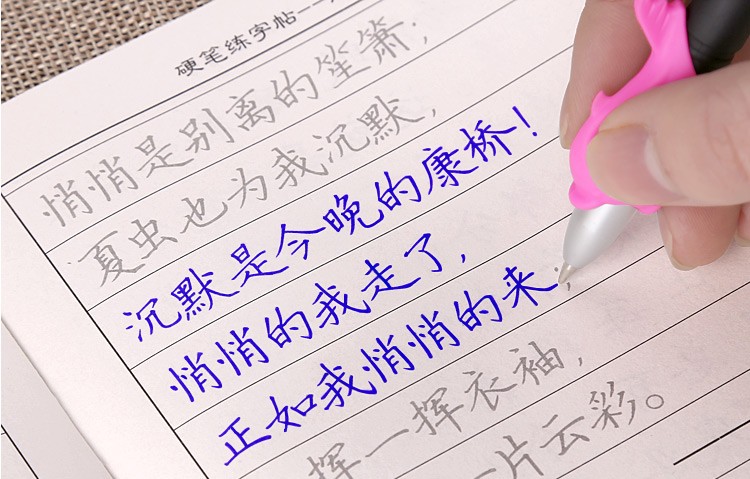 硬笔练字帖--
悄悄是别离的笙箫;
夏虫也为我沉默,
沉默是今晚的康桥!
悄悄的我走了,
正如我悄悄的来;
挥一挥衣袖,
一片云彩。